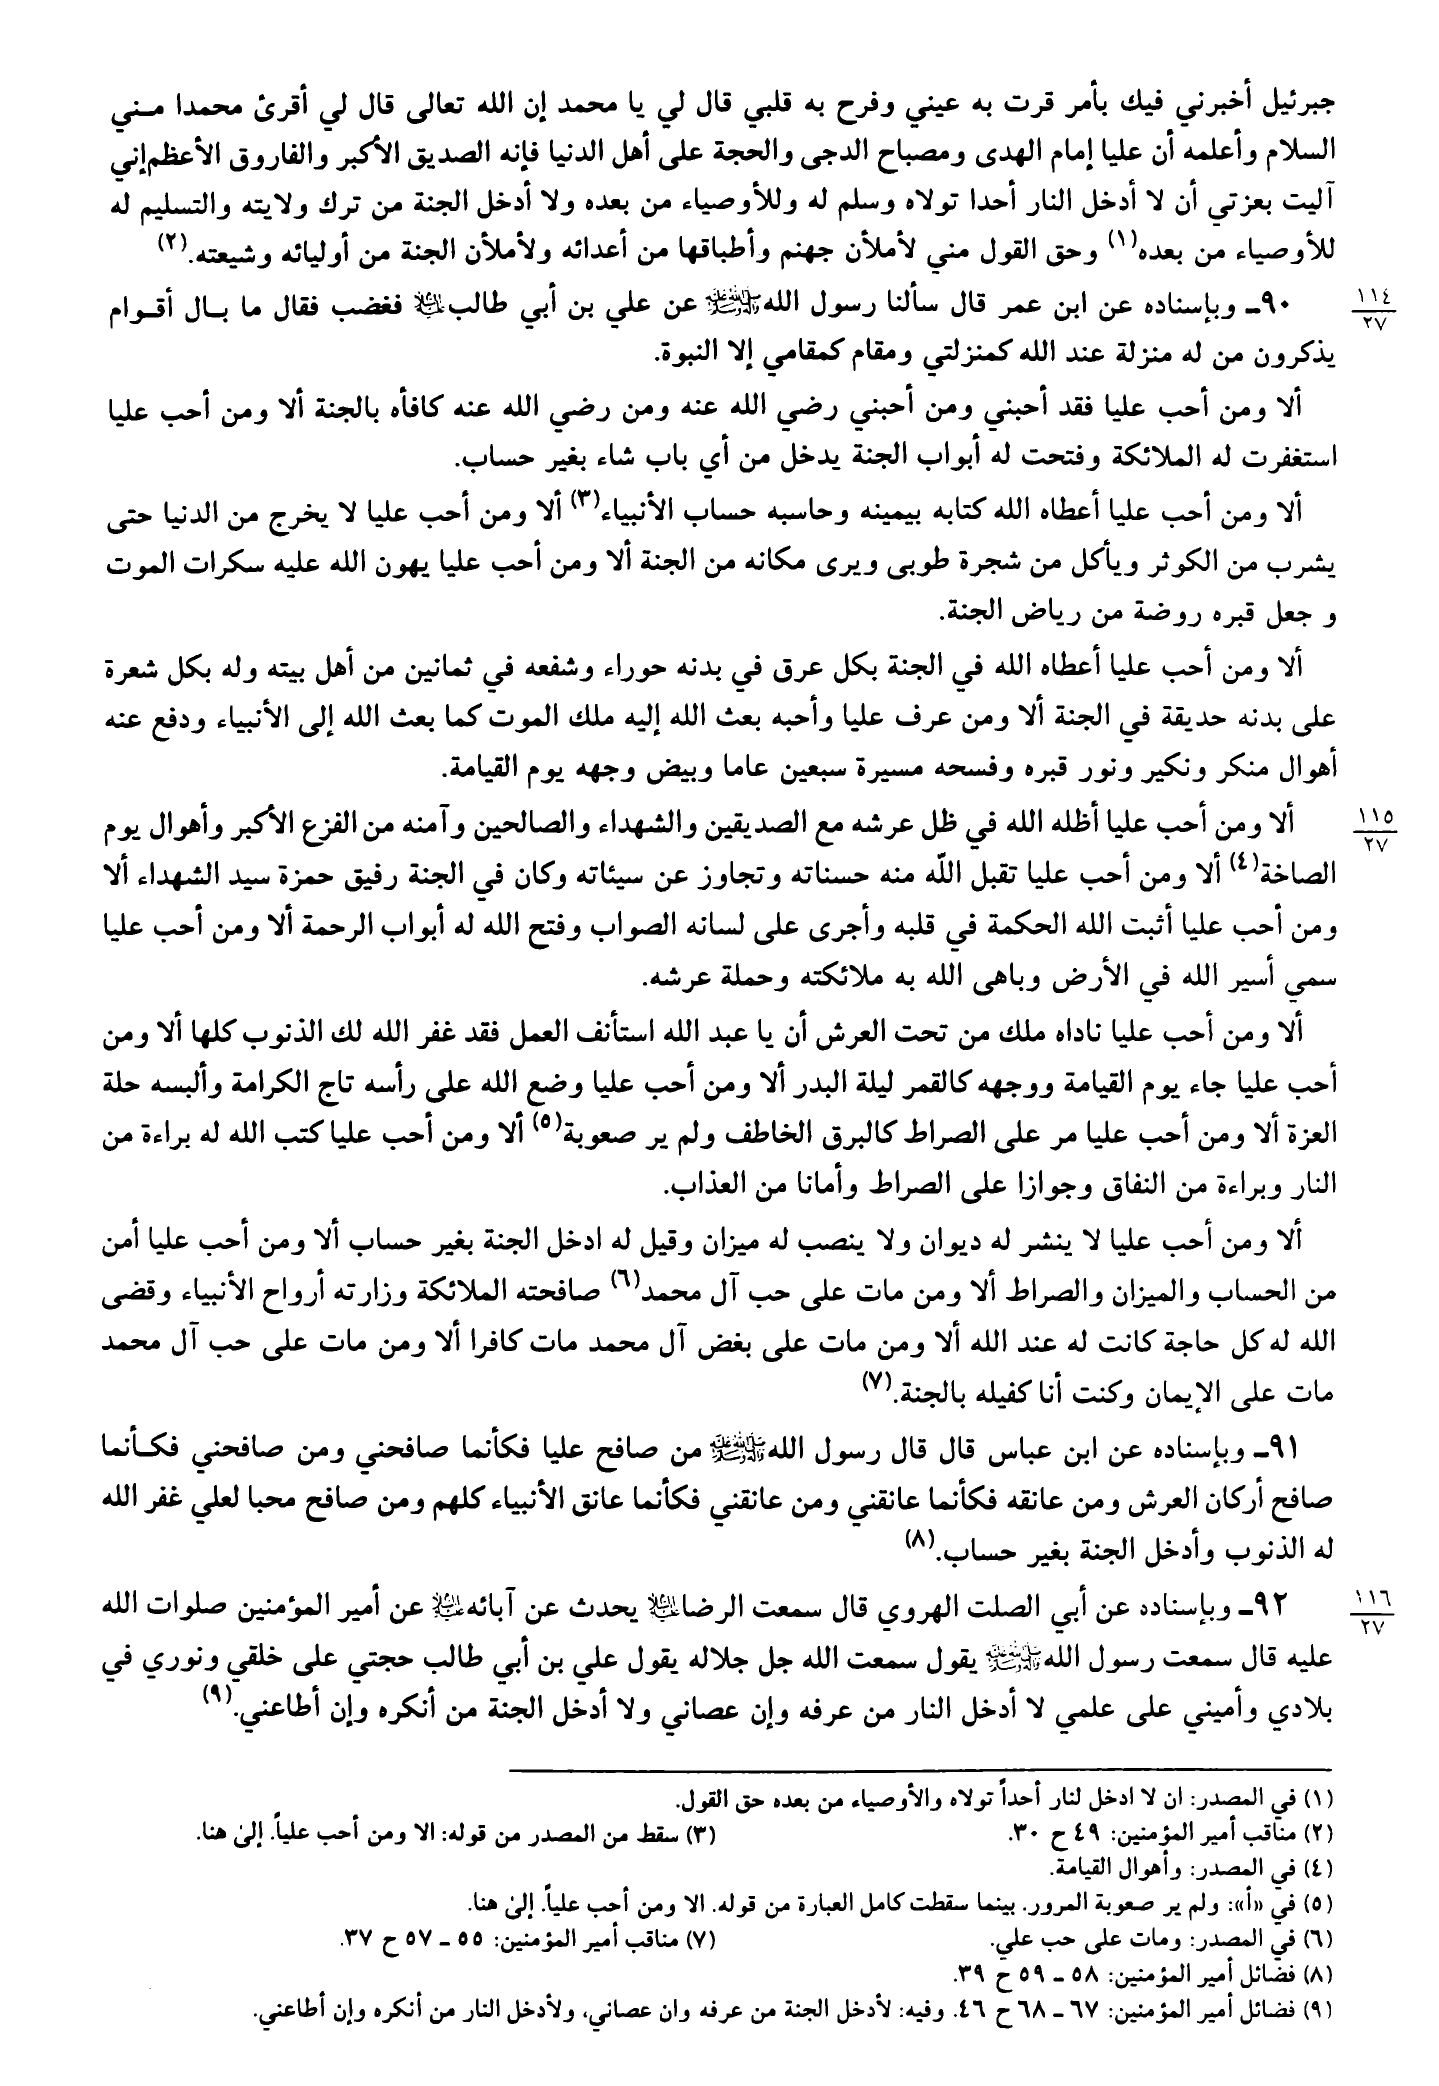 جبرئيل أخبرني فيك بأمر قرت به عيني وفرح به قلبي قال لي يا محمد إن الله تعالى قال لي أقرئ محمدا مـني
السلام وأعلمه أن عليا إمام الهدى ومصباح الدجى والحجة على أهل الدنيا فإنه الصديق الأكبر والفاروق الأعظم إني
آليت بعزتي أن لا أدخل النار أحدا تولاه وسلم له وللأوصياء من بعده ولا أدخل الجنة من ترك ولايته والتسليم له
للأوصياء من بعده(١) وحق القول مني لأملأن جهنم وأطباقها من أعدائه ولأملأن الجنة من أوليائه وشيعته.(٢)
١١٤
٢٧
٩٠ـ وبإسناده عن ابن عمر قال سألنا رسول الله ﷺ عن علي بن أبي طالب عليه السلام فغضب فقال ما بـال أقـوام
يذكرون من له منزلة عند الله كمنزلتي ومقام كمقامي إلا النبوة.
ألا ومن أحب عليا فقد أحبني ومن أحبني رضي الله عنه ومن رضي الله عنه كافأه بالجنة ألا ومن أحب عليا
استغفرت له الملائكة وفتحت له أبواب الجنة يدخل من أي باب شاء بغير حساب.
ألا ومن أحب عليا أعطاه الله كتابه بيمينه وحاسبه حساب الأنبياء(٣) ألا ومن أحب عليا لا يخرج من الدنيا حتى
يشرب من الكوثر ويأكل من شجرة طوبى ويرى مكانه من الجنة ألا ومن أحب عليا يهون الله عليه سكرات الموت
و جعل قبره روضة من رياض الجنة.
ألا ومن أحب عليا أعطاه الله في الجنة بكل عرق في بدنه حوراء وشفعه في ثمانين من أهل بيته وله بكل شعرة
على بدنه حديقة في الجنة ألا ومن عرف عليا وأحبه بعث الله إليه ملك الموت كما بعث الله إلى الأنبياء ودفع عنه
أهوال منكر ونكير ونور قبره وفسحه مسيرة سبعين عاما وبيض وجهه يوم القيامة.
١١٥
٢٧
ألا ومن أحب عليا أظله الله في ظل عرشه مع الصديقين والشهداء والصالحين وآمنه من الفزع الأكبر وأهوال يوم
الصاخة(٤) ألا ومن أحب عليا تقبل اللّه منه حسناته وتجاوز عن سيئاته وكان في الجنة رفيق حمزة سيد الشهداء ألا
ومن أحب عليا أثبت الله الحكمة في قلبه وأجرى على لسانه الصواب وفتح الله له أبواب الرحمة ألا ومن أحب عليا
سمي أسير الله في الأرض وباهى الله به ملائكته وحملة عرشه.
ألا ومن أحب عليا ناداه ملك من تحت العرش أن يا عبد الله استأنف العمل فقد غفر الله لك الذنوب كلها ألا ومن
أحب عليا جاء يوم القيامة ووجهه كالقمر ليلة البدر ألا ومن أحب عليا وضع الله على رأسه تاج الكرامة وألبسه حلة
العزة ألا ومن أحب عليا مر على الصراط كالبرق الخاطف ولم ير صعوبة(٥) ألا ومن أحب عليا كتب الله له براءة من
النار وبراءة من النفاق وجوازا على الصراط وأمانا من العذاب.
ألا ومن أحب عليا لا ينشر له ديوان ولا ينصب له ميزان وقيل له ادخل الجنة بغير حساب ألا ومن أحب عليا أمن
من الحساب والميزان والصراط ألا ومن مات على حب آل محمد(٦) صافحته الملائكة وزارته أرواح الأنبياء وقضى
الله له كل حاجة كانت له عند الله ألا ومن مات على بغض آل محمد مات كافرا ألا ومن مات على حب آل محمد
مات على الإيمان وكنت أنا كفيله بالجنة.(٧)
٩١ـ وبإسناده عن ابن عباس قال قال رسول الله ﷺ من صافح عليا فكأنما صافحني ومن صافحني فكـأنما
صافح أركان العرش ومن عانقه فكأنما عانقني ومن عانقني فكأنما عانق الأنبياء كلهم ومن صافح محبا لعلي غفر الله
له الذنوب وأدخل الجنة بغير حساب.(٨)
١١٦
٢٧
٩٢ـ وبإسناده عن أبي الصلت الهروي قال سمعت الرضا عليه السلام يحدث عن آبائه عليهم السلام عن أمير المؤمنين صلوات الله
عليه قال سمعت رسول الله ﷺ يقول سمعت الله جل جلاله يقول علي بن أبي طالب حجتي على خلقي ونوري في
بلادي وأميني على علمي لا أدخل النار من عرفه وإن عصاني ولا أدخل الجنة من أنكره وإن أطاعني.(٩)
(١) في المصدر: ان لا ادخل لنار أحداً تولاه والأوصياء من بعده حق القول.
(٢) مناقب أمير المؤمنين: ٤٩ ح ٣٠. (٣) سقط من المصدر من قوله: الا ومن أحب علياً. إلى هنا.
(٤) في المصدر: وأهوال القيامة.
(٥) في «أ»: ولم ير صعوبة المرور. بينما سقطت كامل العبارة من قوله. الا ومن أحب علياً. إلى هنا.
(٦) في المصدر: ومات على حب علي. (٧) مناقب أمير المؤمنين: ٥٥ ـ ٥٧ ح ٣٧.
(٨) فضائل أمير المؤمنين: ٥٨ ـ ٥٩ ح ٣٩.
(٩) فضائل أمير المؤمنين: ٦٧ ـ ٦٨ ح ٤٦. وفيه: لأدخل الجنة من عرفه وان عصاني، ولأدخل النار من أنكره وإن أطاعني.